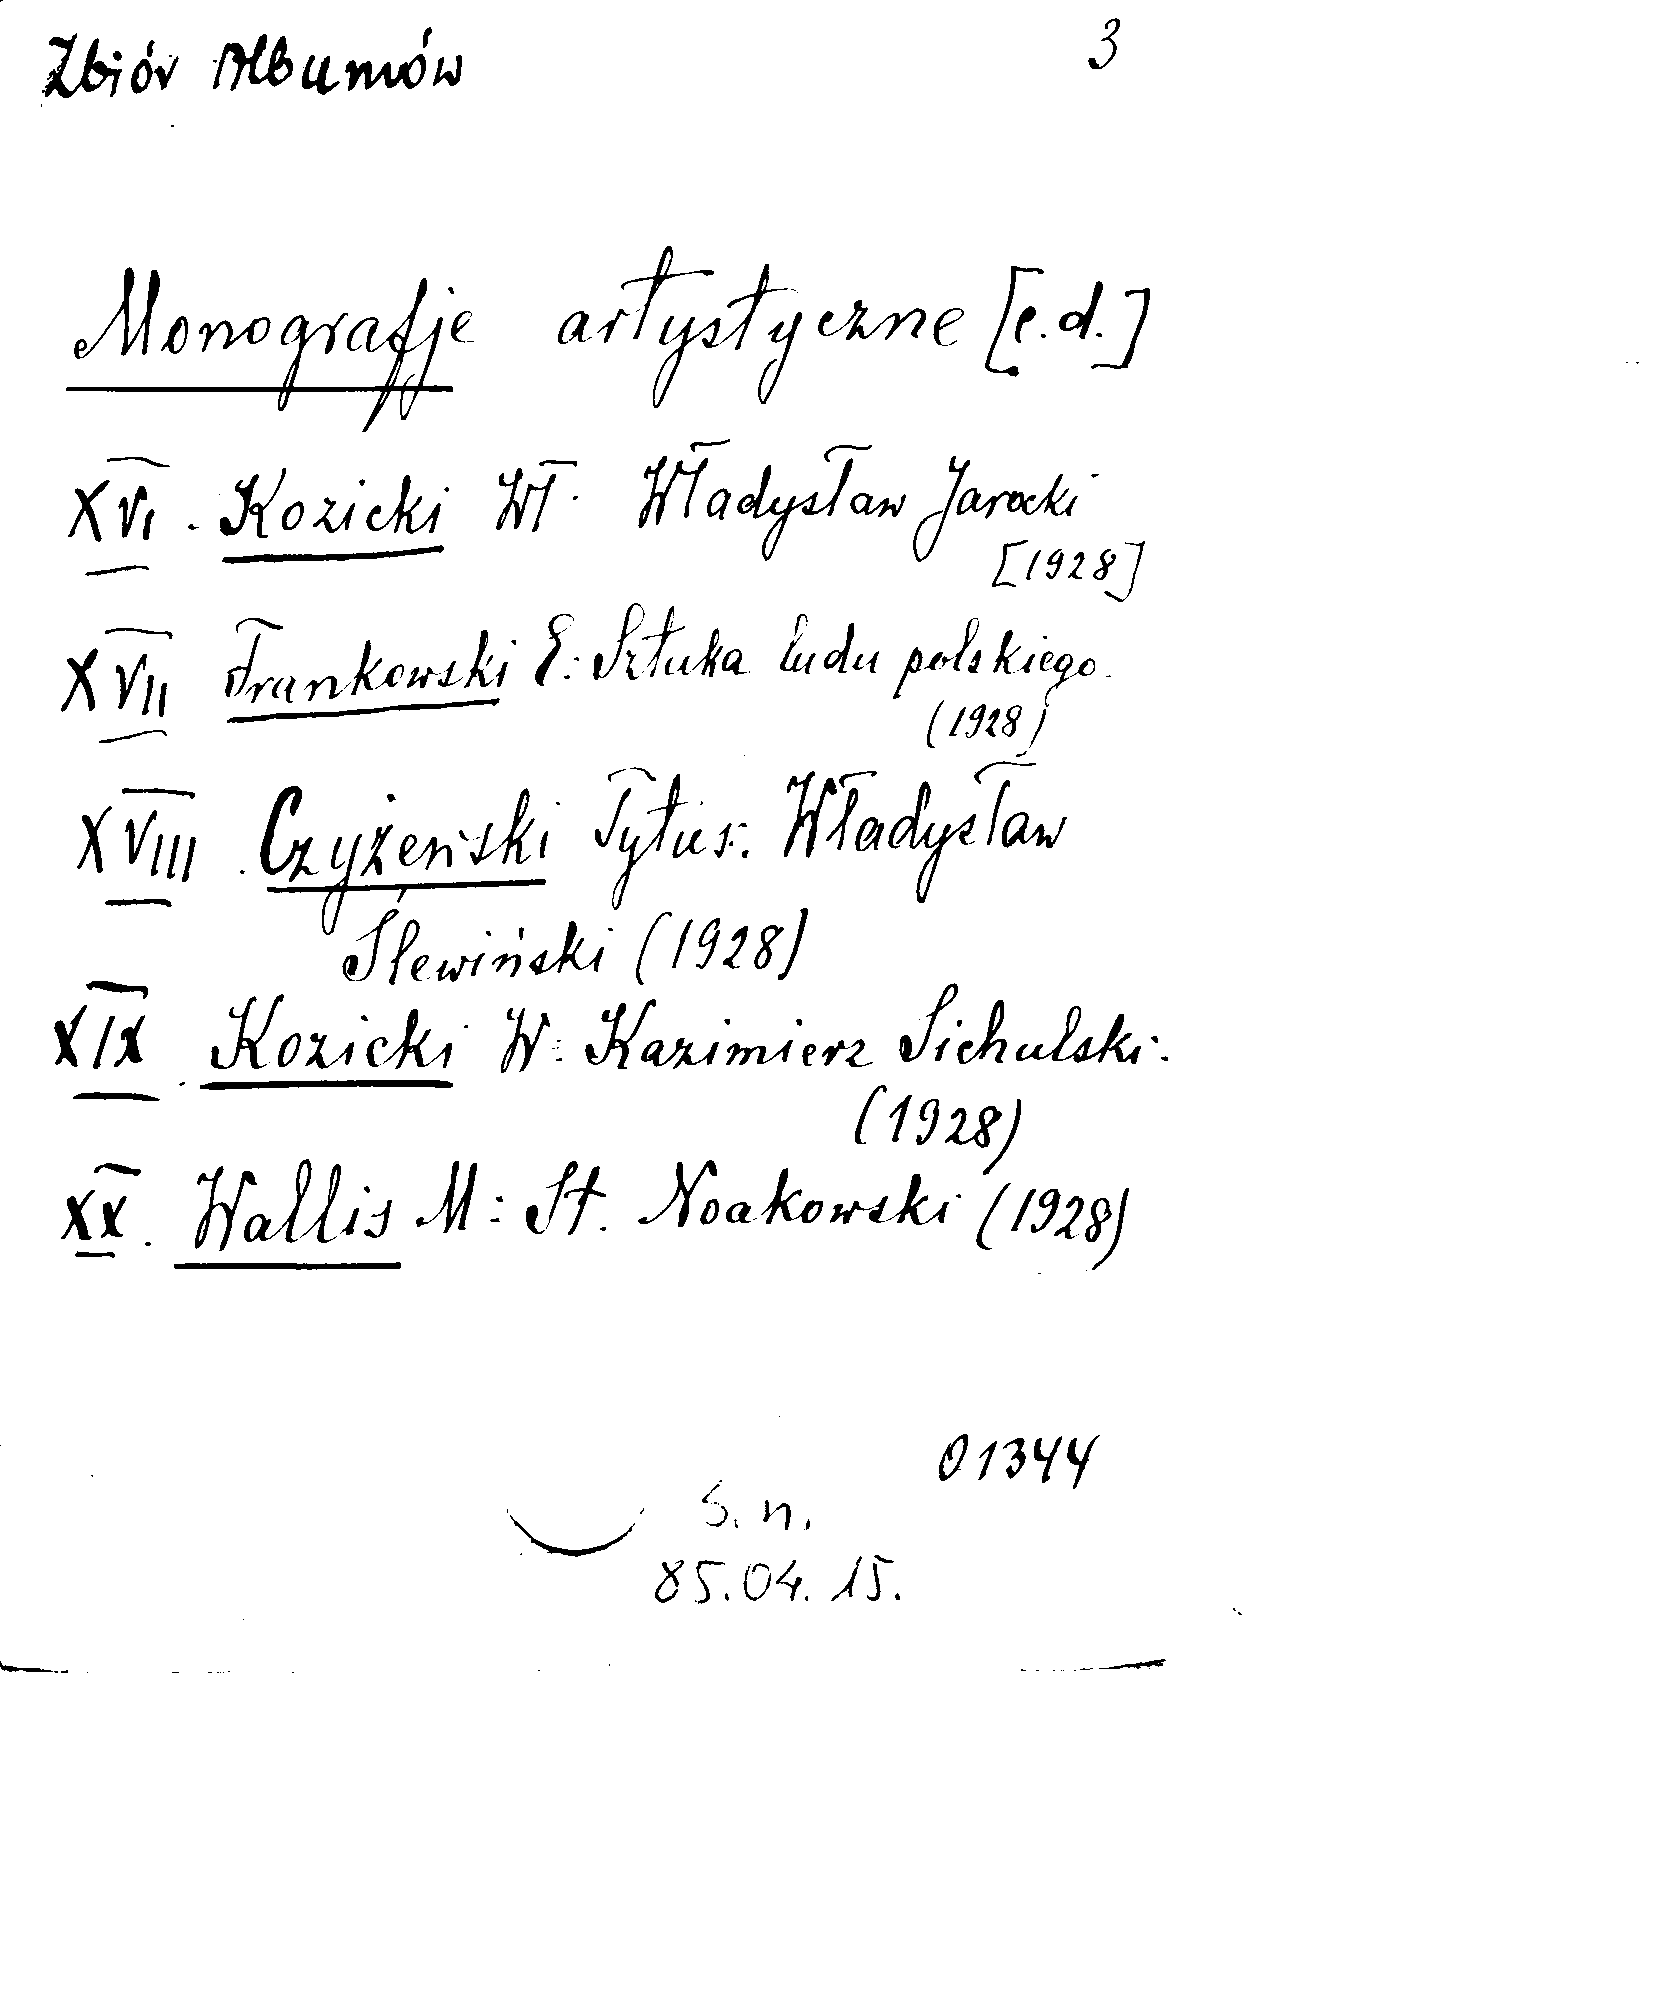 Zbiór Albumów 3
Monografje artystyczne [c.d.]
XVI. Kozicki Wł. Władysław Jarocki
[1928]
XVII Frankowski E. Sztuka ludu polskiego.
(1928)
XVIII. Czyżeński Tytus: Władysław
Ślewiński (1928)
XIX. Kozicki W: Kazimierz Sichulski.
(1928)
XX. Wallis M: St. Noakowski (1928)
01344
S.n.
85.04.15.